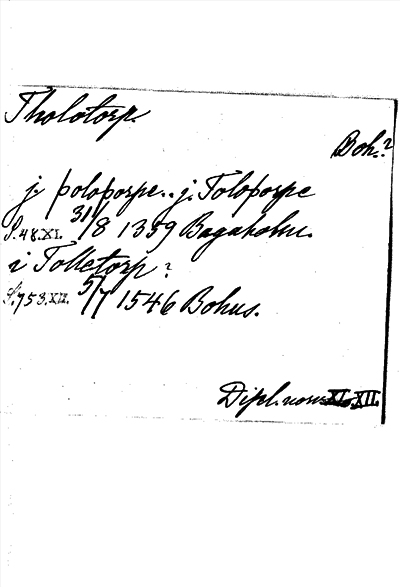 Tholotorp.
Boh.?
j. þoloþorpe.. j. Toloþorpe
S. 48. XI. 31/8 1359 Bagahohu.
i Tolletorp?
S. 753. XII. 5/7 1546 Bohus.
Dipl. norv. XI. XII.